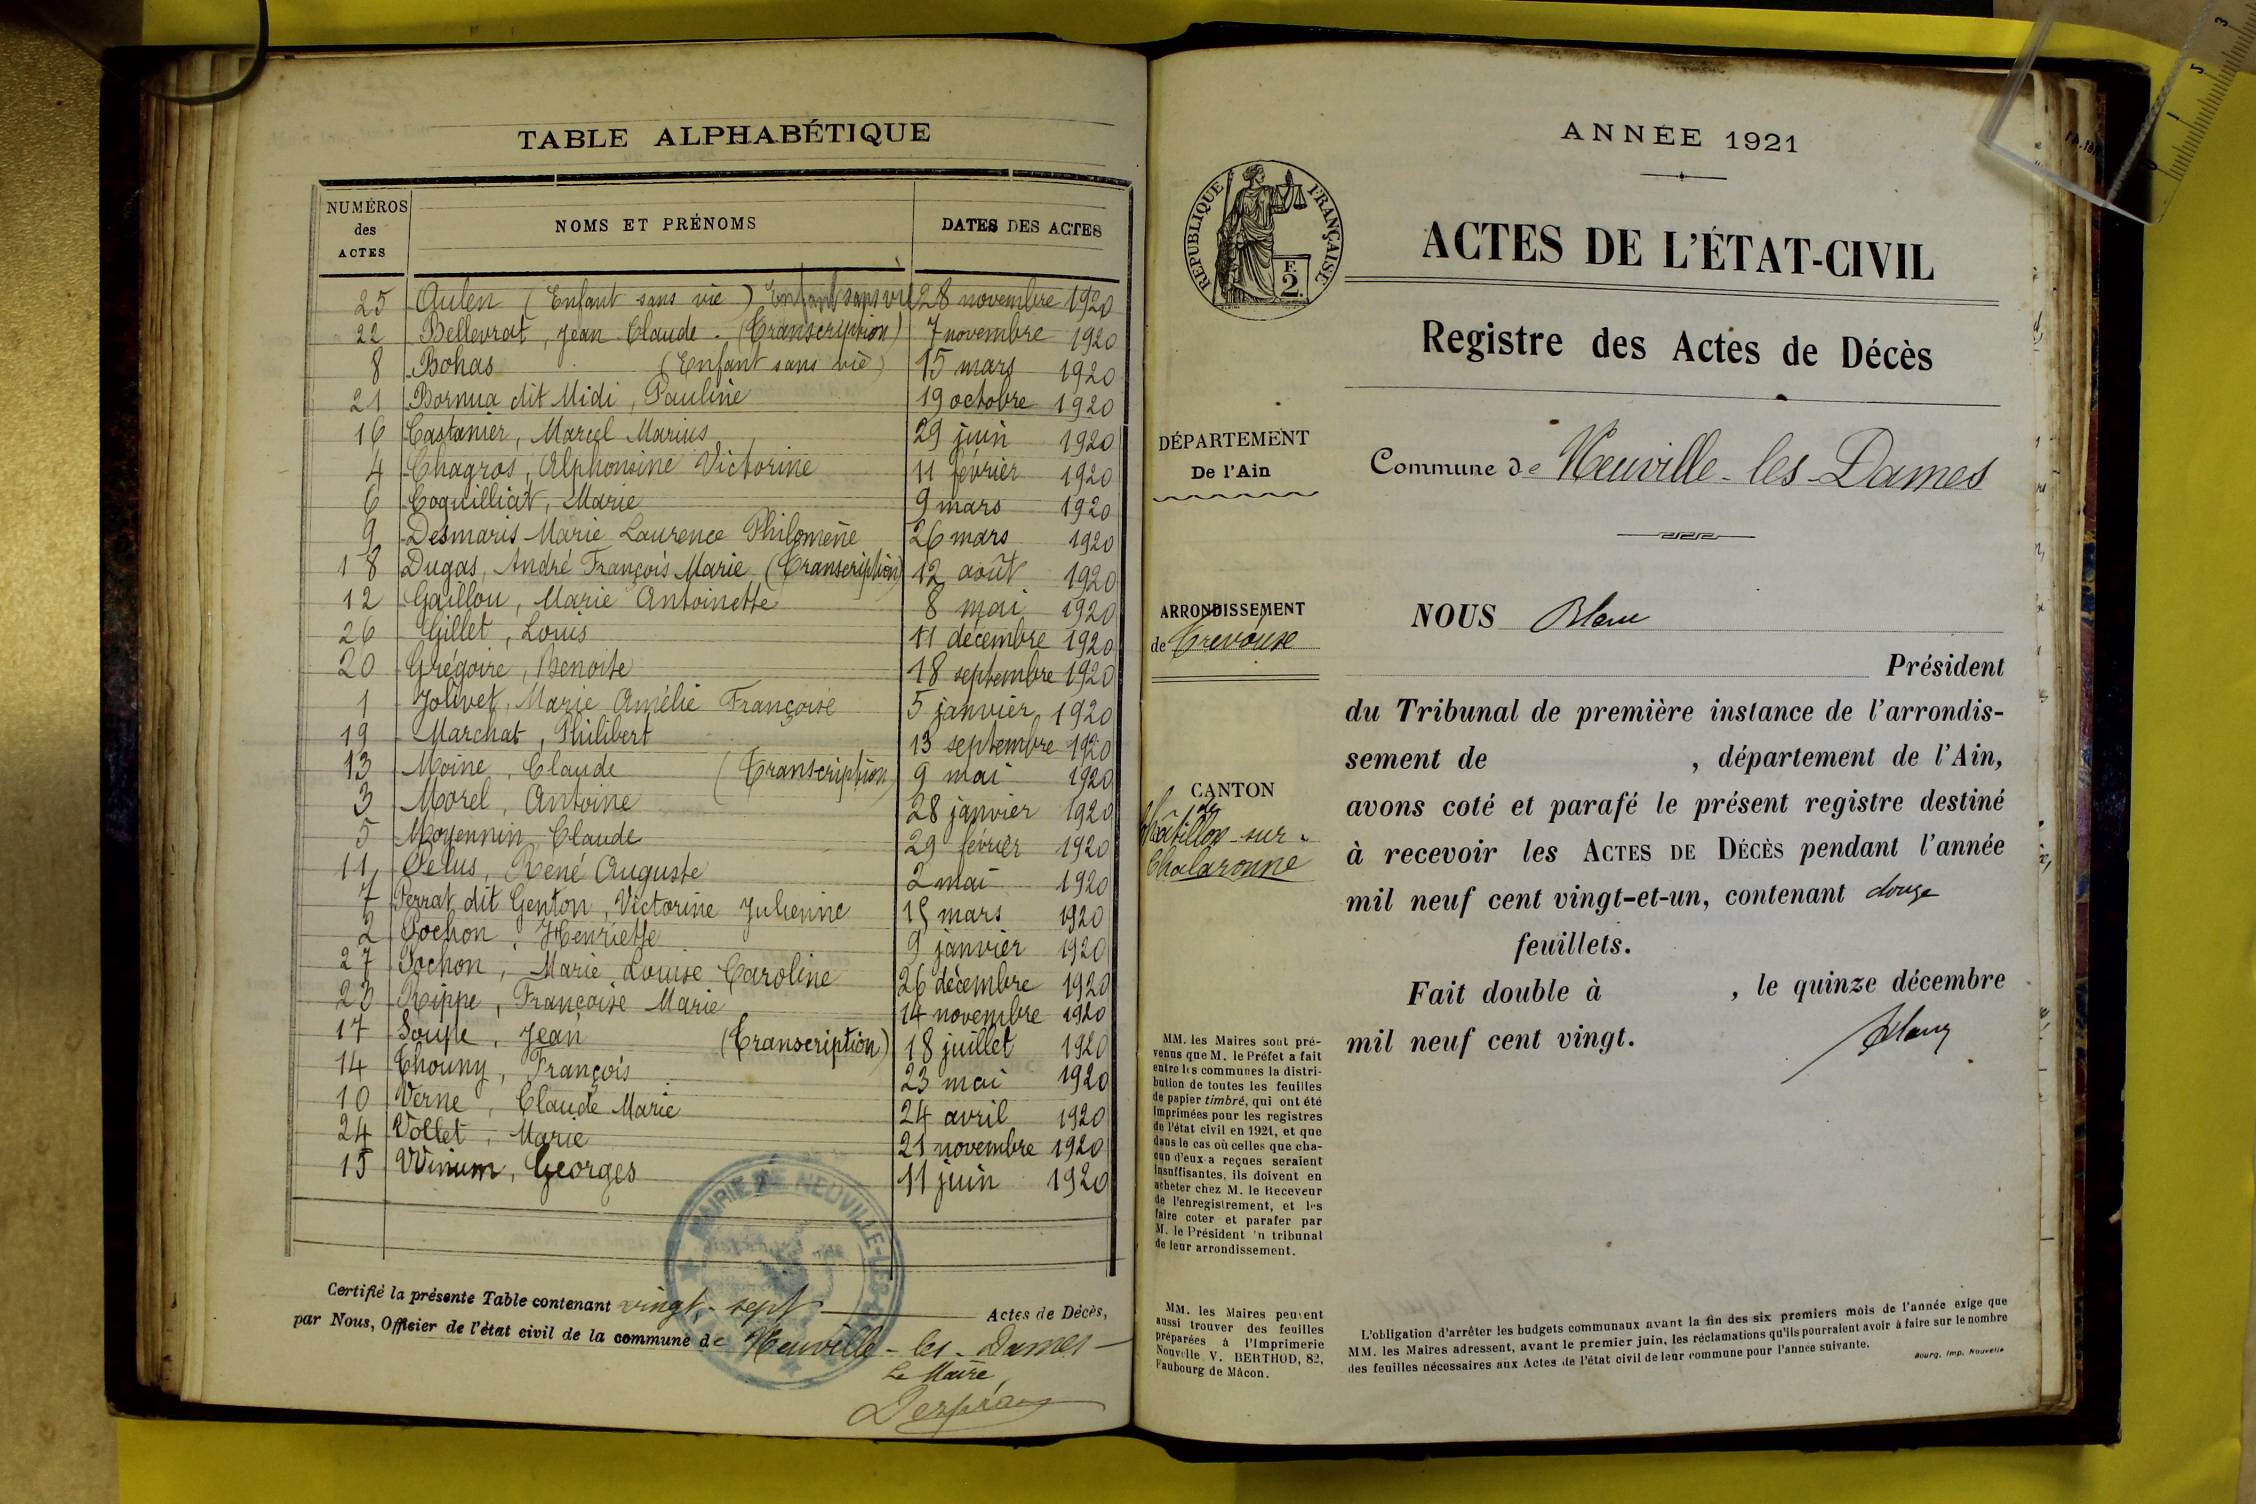 TABLE ALPHABÉTIQUE
NUMÉROS des ACTES NOMS ET PRÉNOMS DATES DES ACTES
25 Aulen (Enfant sans vie) Enfant sans vie 28 novembre 1920
22 Bellevrat, Jean Claude. (Transcription) 7 novembre 1920
8 Bohas (Enfant sans vie) 15 mars 1920
21 Bornua dit Midi, Pauline 19 octobre 1920
16 Castanier, Marcel Marius 29 juin 1920
4 Chagros, Alphonsine Victorine 11 février 1920
6 Coquilliat, Marie 9 mars 1920
9 Desmaris Marie Laurence Philomène 26 mars 1920
18 Dugas, André François Marie (Transcription) 12 août 1920
12 Gaillou, Marie Antoinette 8 mai 1920
26 Gillet, Louis 11 décembre 1920
20 Grégoire, Benoite 18 septembre 1920
1 Jolivet, Marie Amélie Françoise 5 janvier 1920
19 Marchat, Philibert 13 septembre 1920
13 Moine, Claude (Transcription) 9 mai 1920
3 Morel, Antoine 28 janvier 1920
5 Moyennin Claude 29 février 1920
11 Pelus, René Auguste 2 mai 1920
7 Perrat dit Genton, Victorine Julienne 15 mars 1920
2 Pochon, Henriette 9 janvier 1920
27 Pochon, Marie Louise Caroline 26 décembre 1920
23 Rippe, Françoise Marie 14 novembre 1920
17 Soupe, Jean (Transcription) 18 juillet 1920
14 Thouny, François 23 mai 1920
10 Verne, Claude Marie 24 avril 1920
24 Vollet, Marie 21 novembre 1920
15 Winum, Georges 11 juin 1920
MAIRIE DE NEUVILLE-LES-D
Certifié la présente Table contenant vingt-sept Actes de Décès,
par Nous, Officier de l'état civil de la commune de Neuville-les-Dames
Le Maire,
ANNÉE 1921
RÉPUBLIQUE FRANÇAISE
F.
2.
ACTES DE L'ÉTAT-CIVIL
Registre des Actes de Décès
DÉPARTEMENT
De l'Ain
Commune de Neuville-les-Dames
ARRONDISSEMENT
de Trevoux
CANTON
de
Châtillon-sur-
Chalaronne
NOUS Blanc
Président
du Tribunal de première instance de l'arrondis-
sement de , département de l'Ain,
avons coté et parafé le présent registre destiné
à recevoir les ACTES DE DÉCÈS pendant l'année
mil neuf cent vingt-et-un, contenant douze
feuillets.
Fait double à , le quinze décembre
mil neuf cent vingt.
Blanc
MM. les Maires sont pré-
venus que M. le Préfet a fait
entre les communes la distri-
bution de toutes les feuilles
de papier timbré, qui ont été
imprimées pour les registres
de l'état civil en 1921, et que
dans le cas où celles que cha-
cun d'eux a reçues seraient
insuffisantes, ils doivent en
acheter chez M. le Receveur
de l'enregistrement, et les
faire coter et parafer par
M. le Président 'u tribunal
de leur arrondissement.
MM. les Maires peuvent
aussi trouver des feuilles
préparées à l'Imprimerie
Nouvelle V. BERTHOD, 82,
Faubourg de Mâcon.
L'obligation d'arrêter les budgets communaux avant la fin des six premiers mois de l'année exige que
MM. les Maires adressent, avant le premier juin, les réclamations qu'ils pourraient avoir à faire sur le nombre
des feuilles nécessaires aux Actes de l'état civil de leur commune pour l'année suivante.
Bourg, Imp. Nouvelle